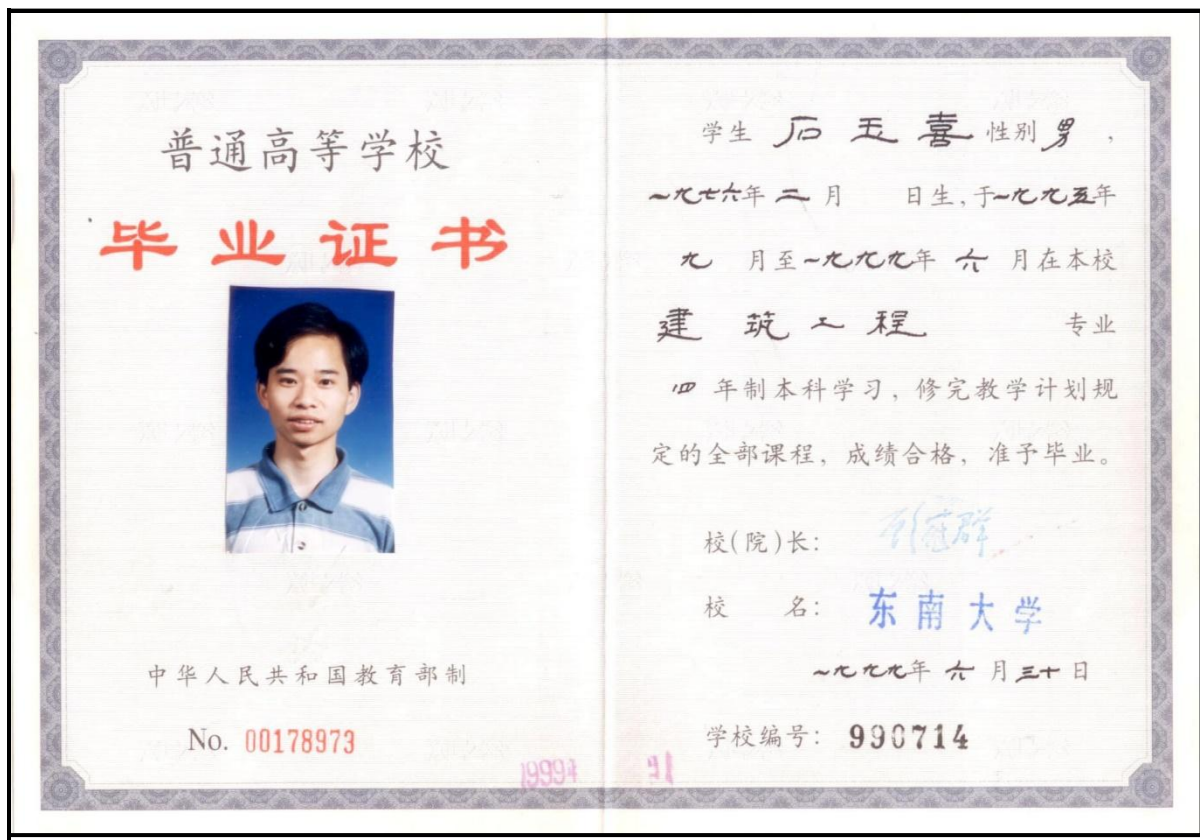 普通高等学校
毕业证书
中华人民共和国教育部制
No. 00178973
学生 石玉喜 性别 男，
一九七六年 二 月 日生，于一九九五年
九 月至一九九九年 六 月在本校
建筑工程 专业
四 年制本科学习，修完教学计划规
定的全部课程，成绩合格，准予毕业。
校(院)长：
校 名： 东南大学
一九九九年 六 月三十日
学校编号： 990714